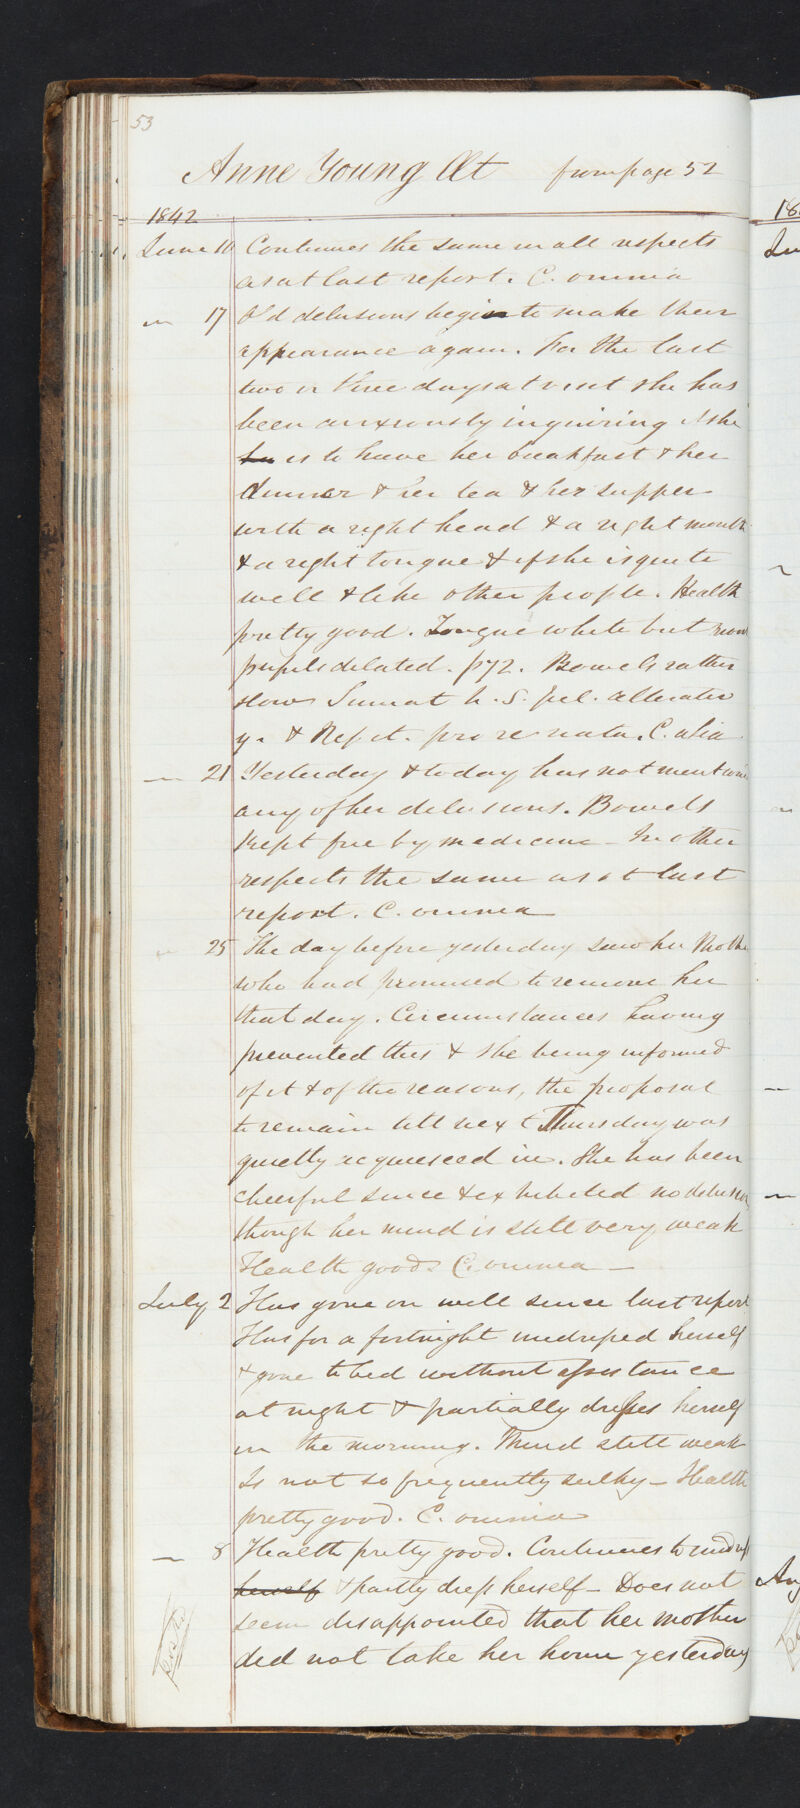 53
Anne Young Æt from page 52
1842
June 10 Continues the same in all respects
as at last report. C. omnia
" 17 Old delusions begin to make their
appearance again. For the last
two or three days at visit she has
been anxiously inquiring if she
is to have her breakfast & her
dinner & her tea & her supper
with a right head & a right mouth
& a right tongue & if she is quite
well & like other people. Health
pretty good. Tongue white but
pupils dilated. p 72. Bowels rather
slow Sumat h. S. pil. alterativ
& Repet. pro re nata. C. alia
— 21 Yesterday & today has not mentioned
any of her delusions. Bowels
kept free by medicine – In other
respects the same as at last
report. C. omnia
" 25 The day before yesterday saw her Mother
who had promised to remove her
that day. Circumstances having
prevented this & she being informed
of it & of the reasons, the proposal
to remain till next Thursday was
quietly acquiesced in. She has been
cheerful since & exhibited no delusion
though her mind is still very weak
Health good C. omnia —
July 2 Has gone on well since last report
Has for a fortnight undressed herself
& gone to bed without assistance
at night & partially dresses herself
in the morning. Mind still weak
Is not so frequently sulky – Health
pretty good. C. omnia
— 8 Health pretty good. Continues to undress
herself & partly dress herself – Does not
seem disappointed that her mother
did not take her home yesterday